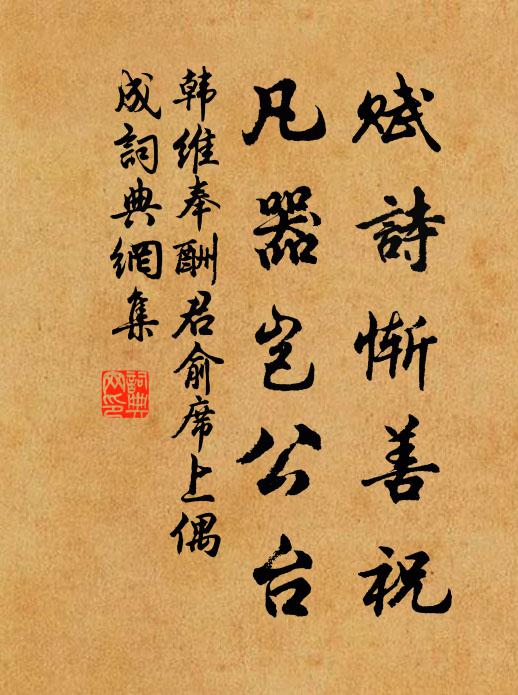 赋詩慚善祝
凡器岂公台
韩維奉酬君俞席上偶
成詞典網集
詞典
网印